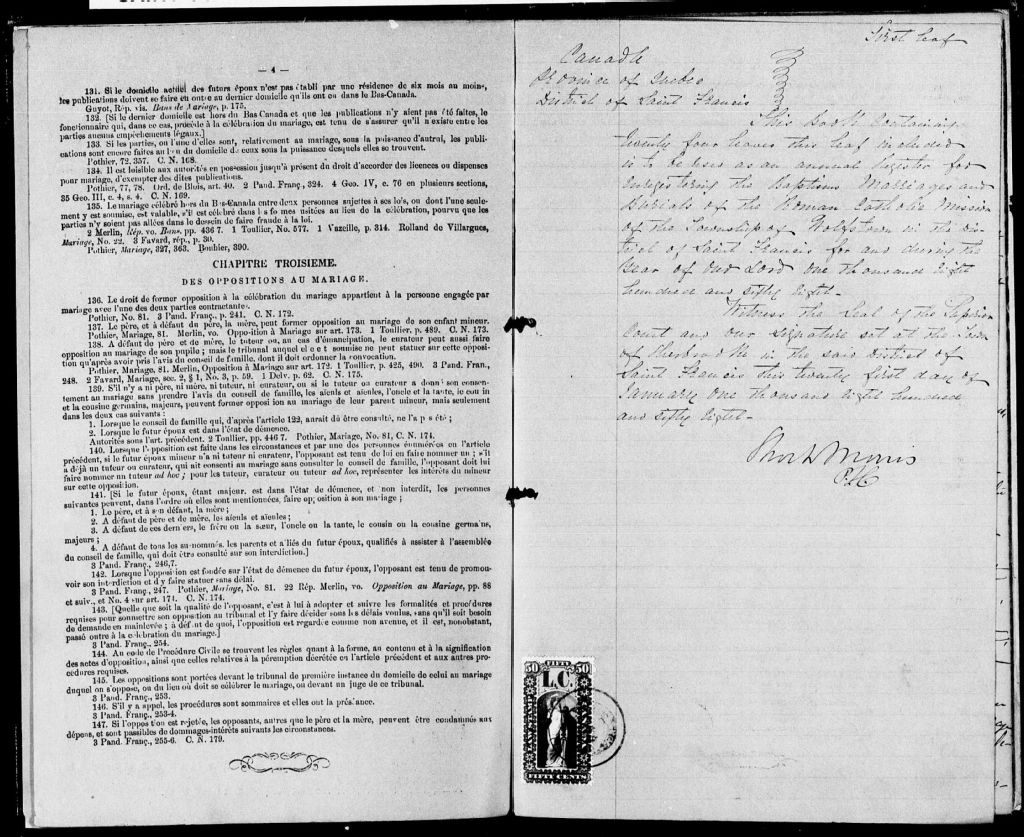 — 4 —
131. Si le domicile actuel des futurs époux n'est pas établi par une résidence de six mois au moins,
les publications doivent se faire en outre au dernier domicile qu'ils ont eu dans le Bas-Canada.
Guyot, Rép. vis. Bans de Mariage, p. 175.
132. [Si le dernier domicile est hors du Bas Canada et que les publications n'y aient pas été faites, le
fonctionnaire qui, dans ce cas, procède à la célébration du mariage, est tenu de s'assurer qu'il n'existe entre les
parties aucuns empêchements légaux.]
133. Si les parties, ou l'une d'elles sont, relativement au mariage, sous la puissance d'autrui, les publi-
cations sont encore faites au lieu du domicile de ceux sous la puissance desquels elles se trouvent.
Pothier, 72. 357. C. N. 168.
134. Il est loisible aux autorités en possession jusqu'à présent du droit d'accorder des licences ou dispenses
pour mariage, d'exempter des dites publications.
Pothier, 77, 78. Ord. de Blois, art. 40. 2 Pand. Franç., 324. 4 Geo. IV, c. 76 en plusieurs sections,
35 Geo. III, c. 4, s. 4. C. N. 169.
135. Le mariage célébré hors du Bas-Canada entre deux personnes sujettes à ses lois, ou dont l'une seule-
ment y est soumise, est valable, s'il est célébré dans les formes usitées au lieu de la célébration, pourvu que les
parties n'y soient pas allées dans le dessein de faire fraude à la loi.
2 Merlin, Rép. vo. Bans, pp. 436 7. 1 Toullier, No. 577. 1 Vazeille, p. 314. Rolland de Villargues,
Mariage, No. 22. 3 Favard, rép., p. 30.
Pothier, Mariage, 327, 363. Bouhier, 390.
CHAPITRE TROISIEME.
DES OPPOSITIONS AU MARIAGE.
136. Le droit de former opposition à la célébration du mariage appartient à la personne engagée par
mariage avec l'une des deux parties contractantes.
Pothier, No. 81. 3 Pand. Franç., p. 241. C. N. 172.
137. Le père, et à défaut du père, la mère, peut former opposition au mariage de son enfant mineur.
Pothier, Mariage, 81. Merlin, vo. Opposition à Mariage sur art. 173. 1 Toullier, p. 489. C. N. 173.
138. A défaut de père et de mère, le tuteur ou, au cas d'émancipation, le curateur peut aussi faire
opposition au mariage de son pupile ; mais le tribunal auquel elle est soumise ne peut statuer sur cette opposi-
tion qu'après avoir pris l'avis du conseil de famille, dont il doit ordonner la convocation.
Pothier, Mariage, 81. Merlin, Opposition à Mariage sur art. 172. 1 Toullier, p. 425, 490. 3 Pand. Fran.,
248. 2 Favard, Mariage, sec. 2, § 1, No. 3, p. 59. 1 Delv. p. 62. C. N. 175.
139. S'il n'y a ni père, ni mère, ni tuteur, ni curateur, ou si le tuteur ou curateur a donné son consen-
tement au mariage sans prendre l'avis du conseil de famille, les aïeuls et aïeules, l'oncle et la tante, le cousin
et la cousine germains, majeurs, peuvent former opposition au mariage de leur parent mineur, mais seulement
dans les deux cas suivants :
1. Lorsque le conseil de famille qui, d'après l'article 122, aurait du être consulté, ne l'a pas été ;
2. Lorsque le futur époux est dans l'état de démence.
Autorités sous l'art. précédent. 2 Toullier, pp. 446 7. Pothier, Mariage, No. 81, C. N. 174.
140. Lorsque l'opposition est faite dans les circonstances et par une des personnes énumérées en l'article
précédent, si le futur époux mineur n'a ni tuteur ni curateur, l'opposant est tenu de lui en faire nommer un ; s'il
a déjà un tuteur ou curateur, qui ait consenti au mariage sans consulter le conseil de famille, l'opposant doit lui
faire nommer un tuteur ad hoc ; pour les tuteur, curateur ou tuteur ad hoc, représenter les intérêts du mineur
sur cette opposition.
141. [Si le futur époux, étant majeur, est dans l'état de démence, et non interdit, les personnes
suivantes peuvent, dans l'ordre où elles sont mentionnées, faire opposition à son mariage ;
1. Le père, et à son défaut, la mère ;
2. A défaut de père et de mère, les aïeuls et aïeules ;
3. A défaut de ces derniers, le frère ou la sœur, l'oncle ou la tante, le cousin ou la cousine germains,
majeurs ;
4. A défaut de tous les susnommés, les parents et alliés du futur époux, qualifiés à assister à l'assemblée
du conseil de famille, qui doit être consulté sur son interdiction.]
3 Pand. Franç., 246,7.
142. Lorsque l'opposition est fondée sur l'état de démence du futur époux, l'opposant est tenu de promou-
voir son interdiction et d'y faire statuer sans délai.
3 Pand. Franç., 247. Pothier, Mariage, No. 81. 22 Rép. Merlin, vo. Opposition au Mariage, pp. 88
et suiv., et No. 4 sur art. 174. C. N. 174.
143. [Quelle que soit la qualité de l'opposant, c'est à lui à adopter et suivre les formalités et procédures
requises pour soumettre son opposition au tribunal et l'y faire décider sous les délais voulus, sans qu'il soit besoin
de demande en mainlevée ; à défaut de quoi, l'opposition est regardée comme non avenue, et il est, nonobstant,
passé outre à la célébration du mariage.]
3 Pand. Franç., 254.
144. Au code de Procédure Civile se trouvent les règles quant à la forme, au contenu et à la signification
des actes d'opposition, ainsi que celles relatives à la péremption décrétée en l'article précédent et aux autres pro-
cédures requises.
145. Les oppositions sont portées devant le tribunal de première instance du domicile de celui au mariage
duquel on s'oppose, ou du lieu où doit se célébrer le mariage, ou devant un juge de ce tribunal.
3 Pand. Franç., 253.
146. S'il y a appel, les procédures sont sommaires et elles ont la préséance.
3 Pand. Franç., 253-4.
147. Si l'opposition est rejetée, les opposants, autres que le père et la mère, peuvent être condamnés aux
dépens, et sont passibles de dommages-intérêts suivants les circonstances.
3 Pand. Franç., 255-6. C. N. 179.
First leaf
Canada
Province of Quebec
District of Saint Francis
This Book containing
twenty four leaves this leaf included
is to be used as an annual Register for
Enregistering the Baptisms Marriages and
Burials of the Roman Catholic Mission
of the Township of Wolfstown in the Dis-
trict of Saint Francis for and during the
Year of Our Lord one thousand eight
hundred and sixty eight -
Witness the Seal of the Superior
Court and our signature set at the Town
of Sherbrooke in the said District of
Saint Francis this twenty first day of
January one thousand eight hundred
and sixty eight -
Short & Morris
P.S.C.
50 FIFTY 50
L.C.
LAW STAMP
FIFTY CENTS